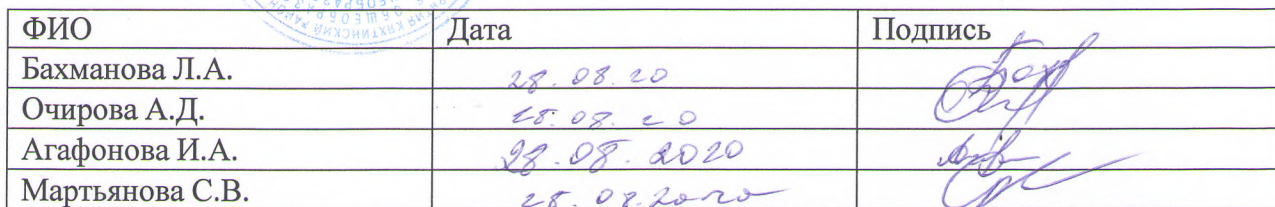 ФИО Дата Подпись
Бахманова Л.А. 28.08.20
Очирова А.Д. 28.08.20
Агафонова И.А. 28.08.2020
Мартьянова С.В. 28.08.2020